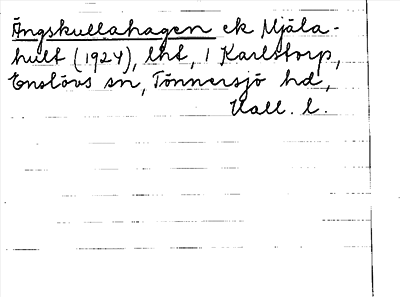 Ängskullahagen ek Mjäla-
hult (1924), lht, 1 Karlstorp,
Enslövs sn, Tönnersjö hd,
Hall. l.